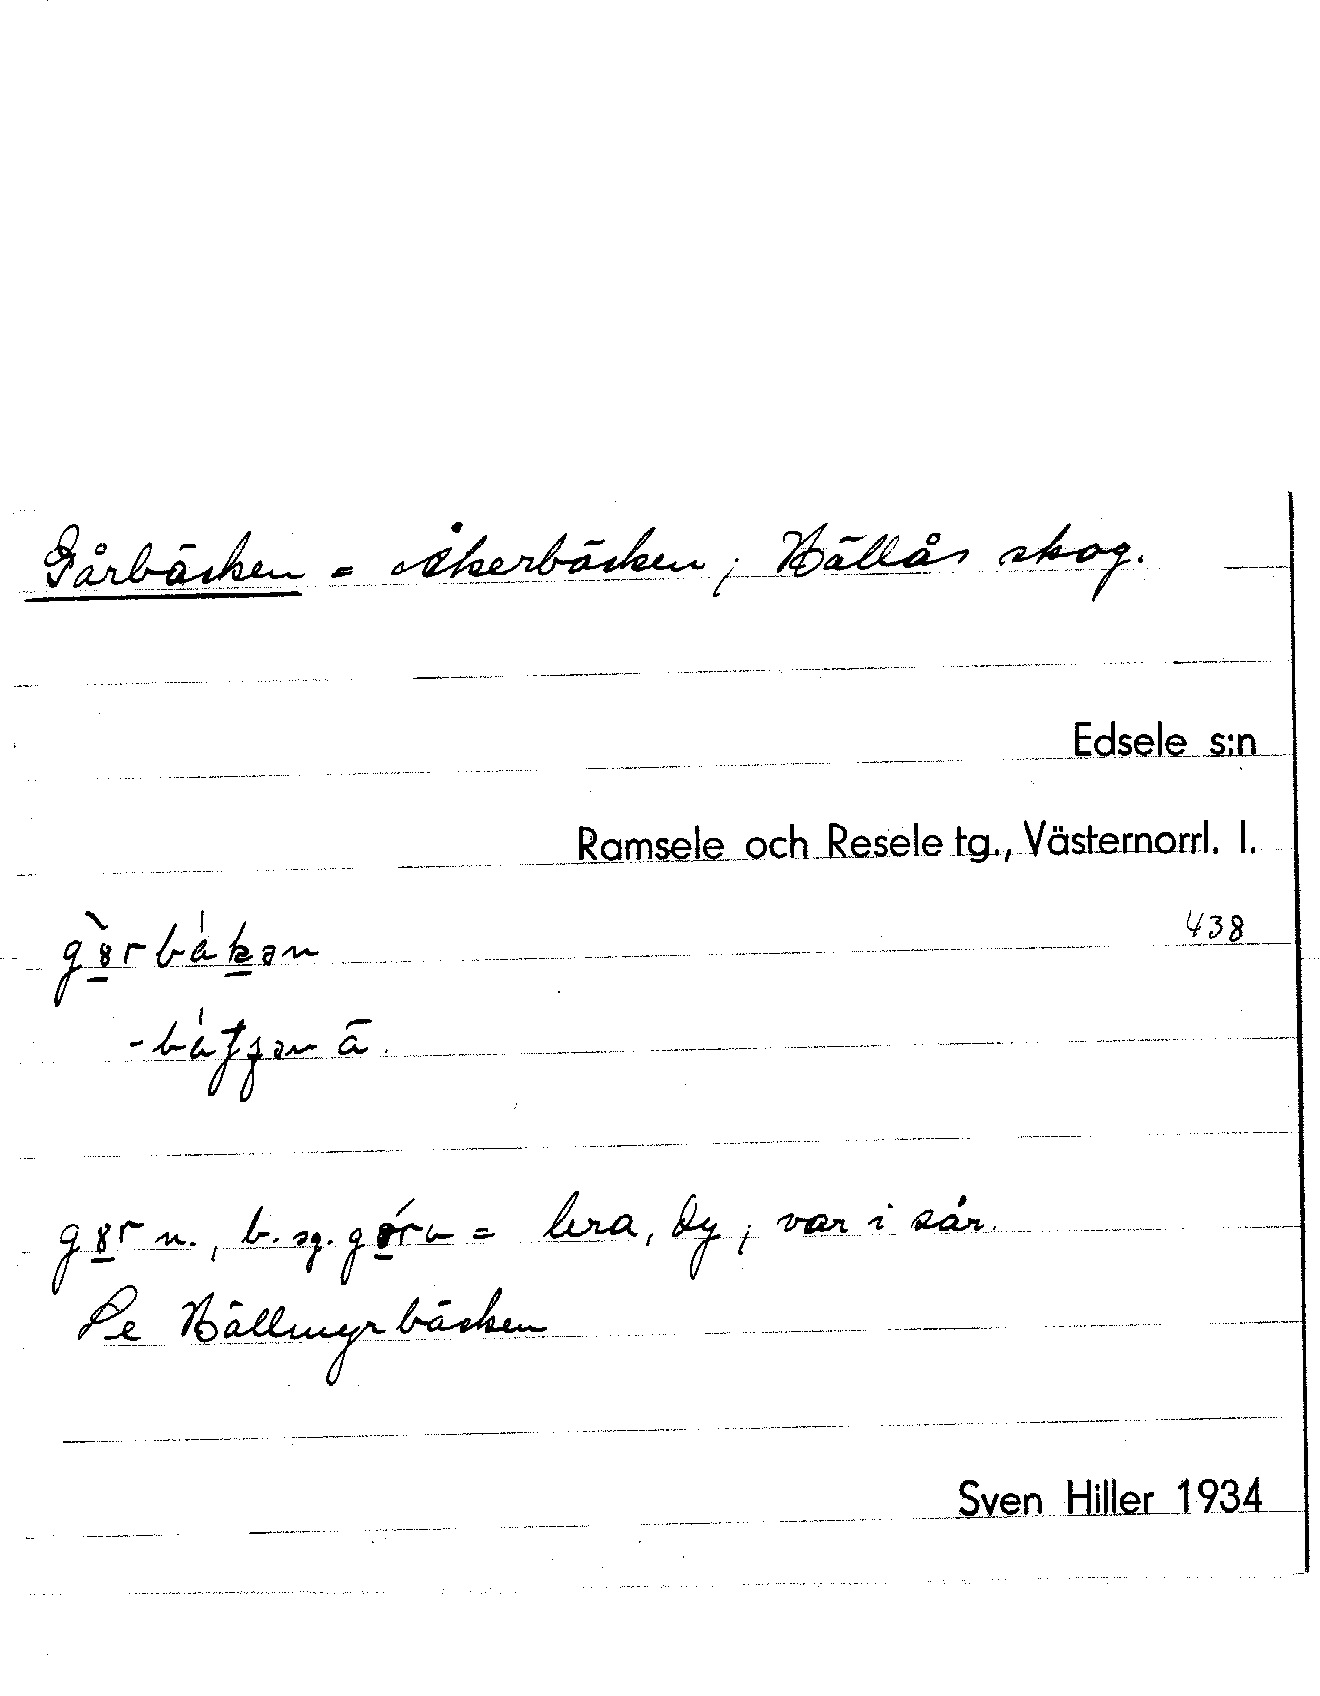 Gårbäcken = Åkerbäcken; Hällås skog.
Edsele s:n
Ramsele och Resele tg., Västernorrl. l.
438
-bá
n., b. sg. = lera, dy; var i sår.
Se Hällmyrbäcken
Sven Hiller 1934